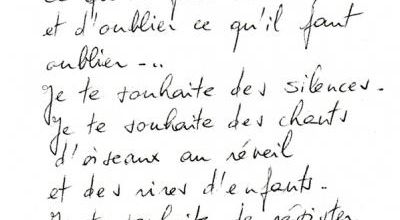 et d'oublier ce qu'il faut
oublier...
Je te souhaite des silences.
Je te souhaite des chants
d'oiseaux au réveil
et des rires d'enfants.
Je te souhaite de résister